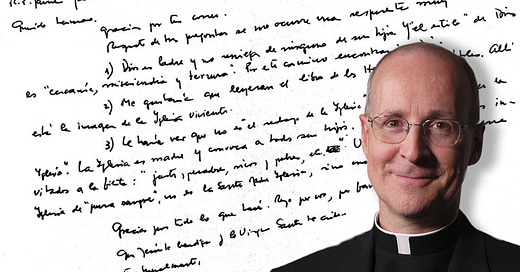 Querido hermano,
gracias por tu correo.
Respecto de tus preguntas se me ocurre una respuesta muy
1) Dios es Padre y no reniega de ninguno de sus hijos. Y "el estilo" de Dios
es "cercanía, misericordia y ternura". Por este camino encontrarás
2) Me gustaría que leyeran el libro de los H Allí
está la imagen de la Iglesia viviente.
3) Le haría ver que no es el rechazo de la Iglesia
Iglesia". La Iglesia es madre y convoca a todos sus hijos.
vitados a la fiesta: "justos, pecadores, ricos y pobres, etc." U
Iglesia de "pura sangre", no es la Santa Madre Iglesia, sino
Gracias por todo lo que hacés. Rezo por vos, por favor
Que Jesús te bendiga y la Virgen Santa te cuide.
Fraternalmente,